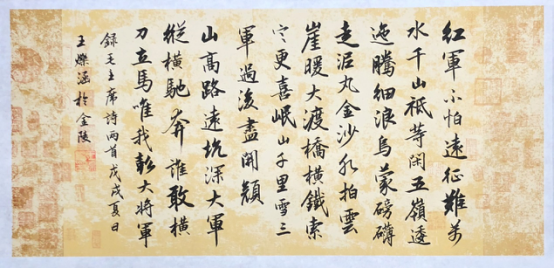 紅軍不怕遠征難萬
水千山祇等閑五嶺逶
迤騰細浪烏蒙磅礴
走泥丸金沙水拍雲
崖暖大渡橋橫鐵索
寒更喜岷山千里雪三
軍過後盡開顏
山高路遠坑深大軍
縱橫馳奔誰敢橫
刀立馬唯我彭大將軍
錄毛主席詩兩首戊戌夏日
王爍涵於金陵